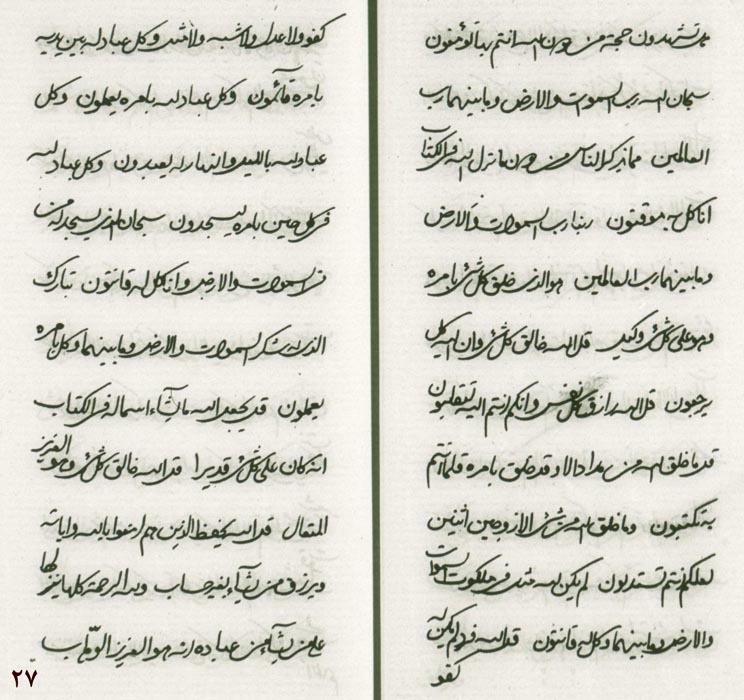 تشهدون حجة من عند الله ان انتم بها توقنون
سبحان الله رب السموات والارض وما بينهما رب
العالمين مما يذكر الناس من عند ما نزل الله في الكتاب
انا كل به موقنون ربنا رب السموات والارض
وما بينهما رب العالمين هو الذي خلق كل شئ بامره
وهو على كل شئ وكيل قل الله خالق كل شئ وان اليه كل
يرجعون قل الله رازق كل نفس وانكم انتم اليه لتقلبون
قد ما خلق الله من مداد الا وقد خلق بامره قلما انتم
به تكتبون وما خلق الله من شئ الا زوجين اثنين
لعلكم انتم تستدلون لم يكن له مثل في ملكوت السموات
والارض وما بينهما وكل له قانتون قل الله فرد لم يكن له
كفو
كفو ولا عدل ولا شبه ولا مثل وكل عباد له بين يديه
بامره قائمون وكل عباد له بامره يعملون وكل
عباد له بالليل والنهار له يعبدون وكل عباد له
في كل حين بامره يسجدون سبحان الذي يسجد له من
في السموات والارض وانا كل له قانتون تبارك
الذي له ملك السموات والارض وما بينهما وكل بامره
يعملون قل يجعل الله ما يشاء اسمائه في الكتاب
انه كان على كل شئ قديرا قل الله خالق كل شئ وهو العزيز
المتعال قل الله يحفظ الذين هم امنوا بالله واياته
ويرزق من يشاء بغير حساب وله الرحمة كلها ينزلها
على من يشاء من عباده انه هو العزيز الوهاب
٢٧